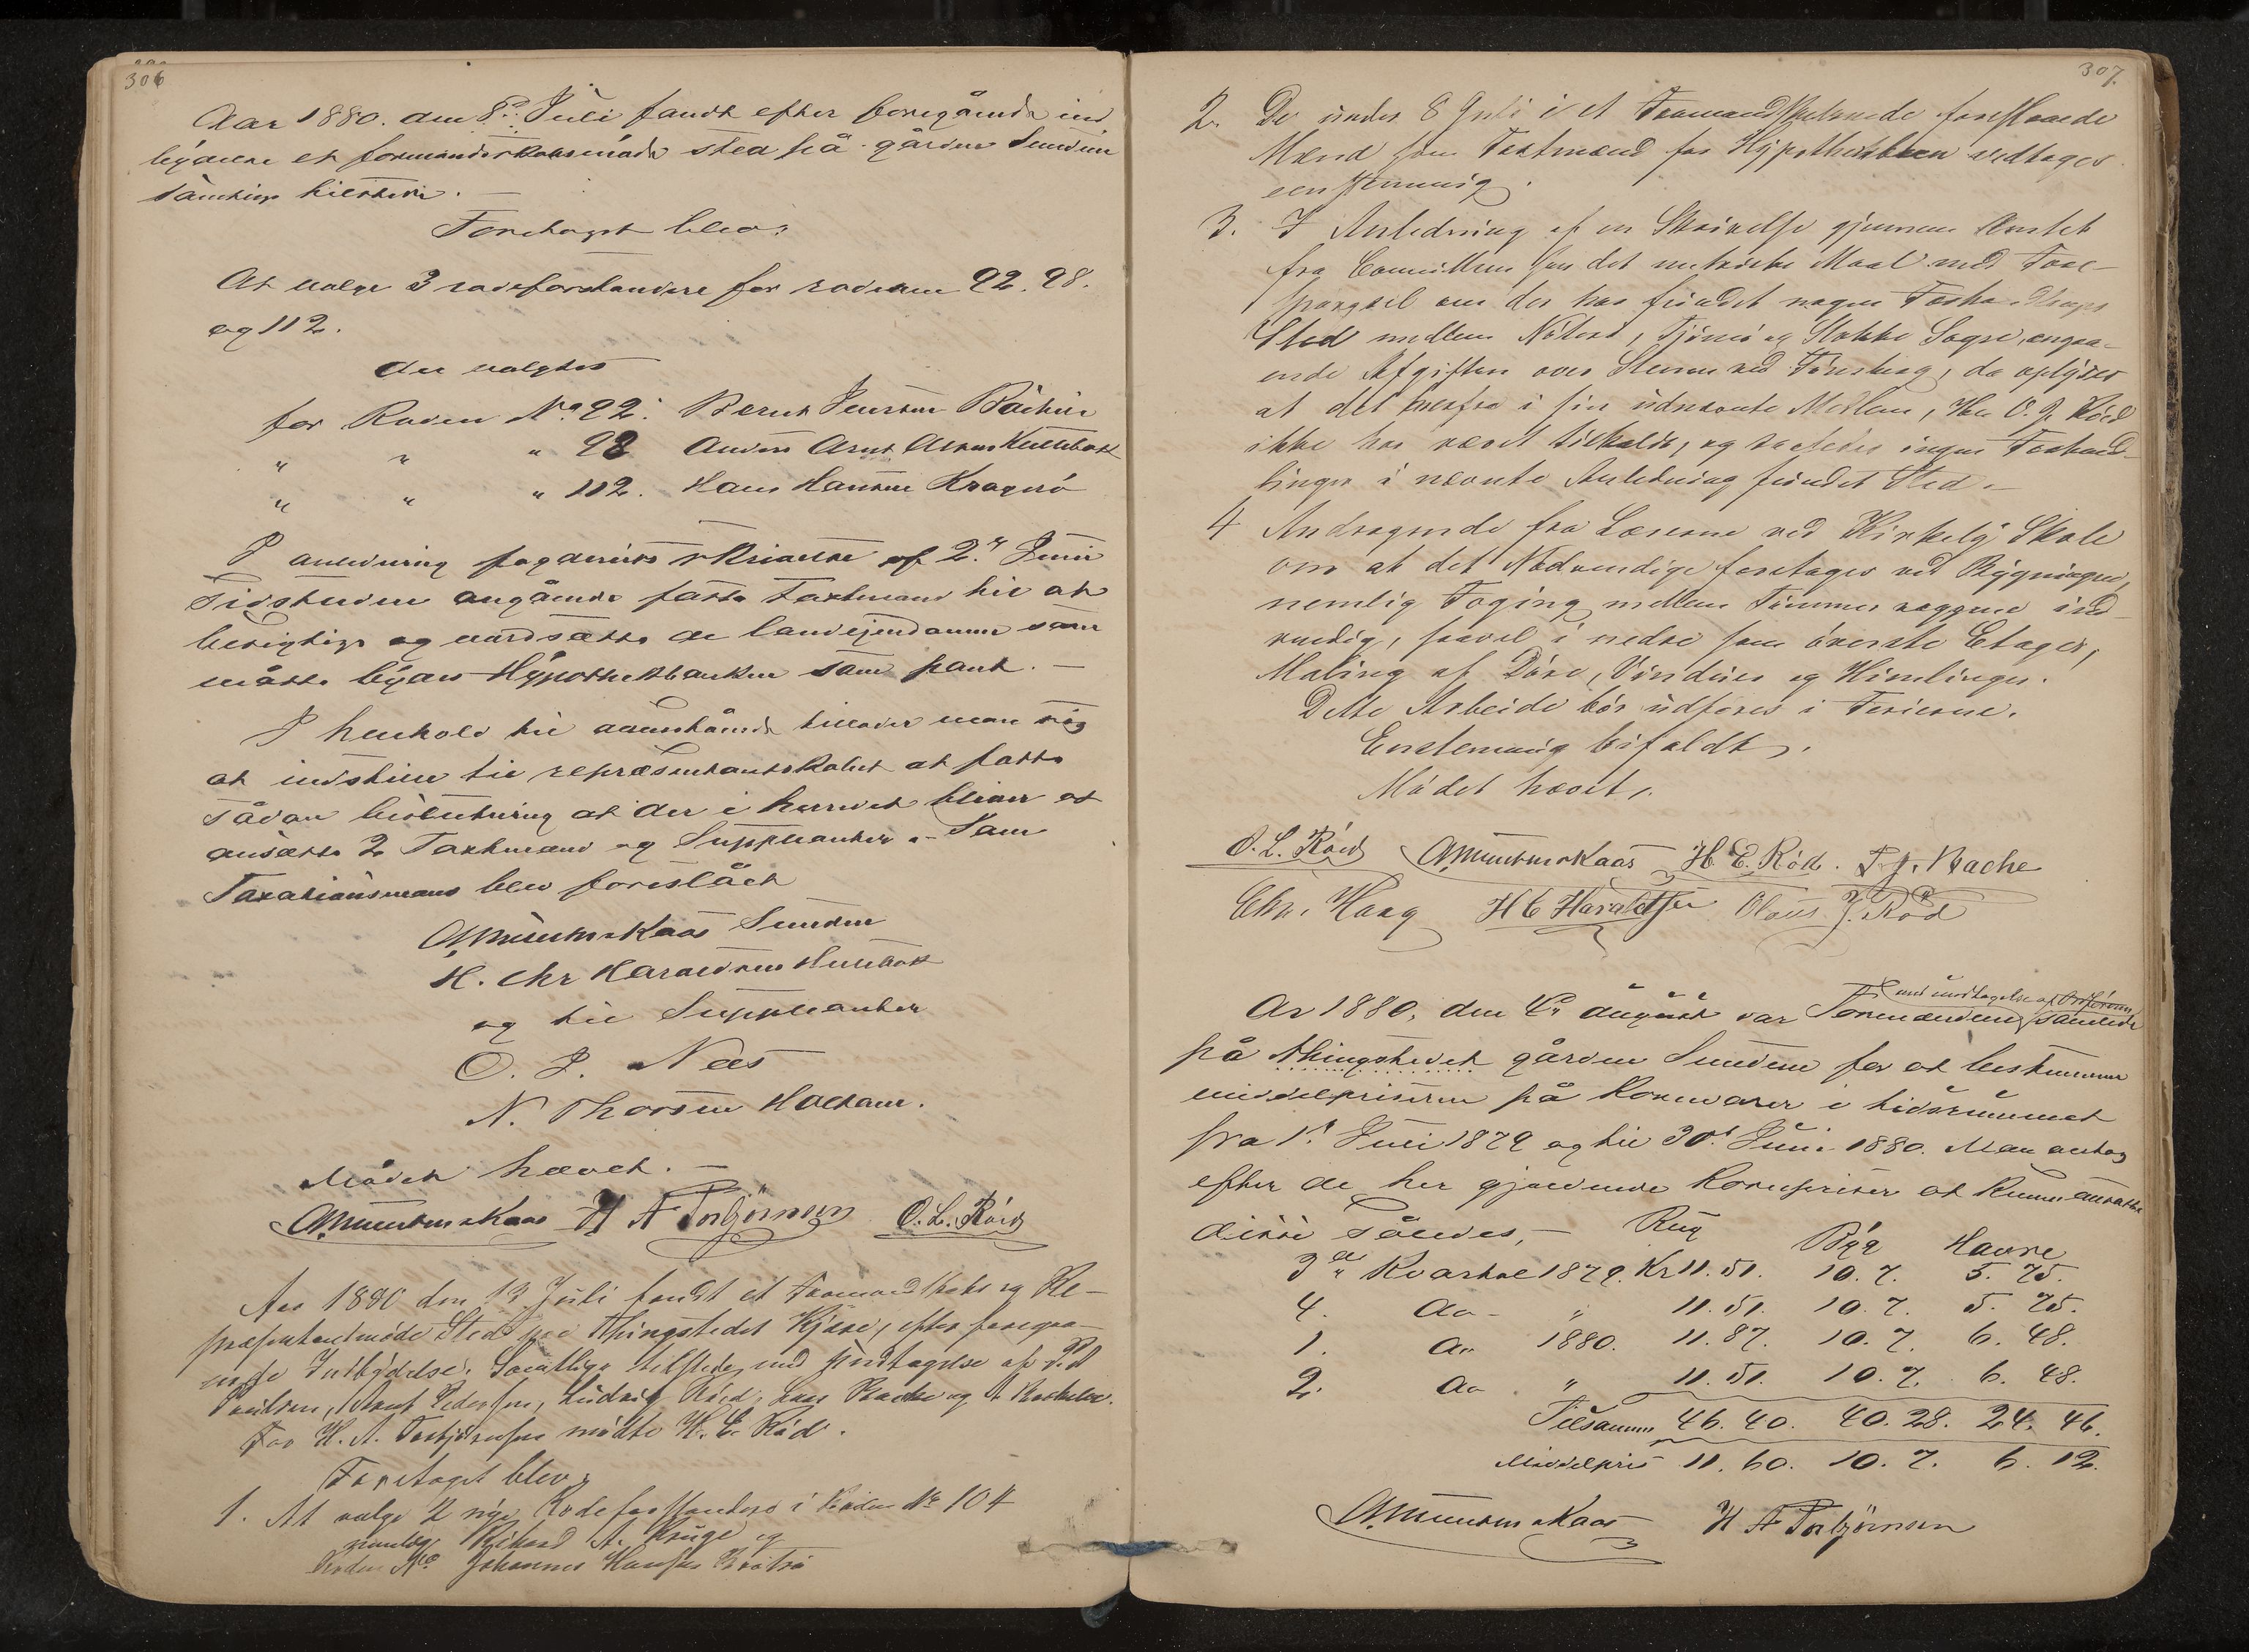 306
Aar 1880. den 8de Juli fandt efter foregåinde ind
bydelse et formandskabsmöde sted på gården Sundene
samtlige tilstede. —
Foretaget blev:
At valge 3 rodeforstandere for roderne 92. 98.
og 112.
der valgtes
for Roden No 92. Bernt Jensen
" " " 98 Anders Arnt
" " " 112. Hans Hansen Kragerö
I anledning fogderiets skrivelse af 2. Juni
Sidstleden angående faste Taxtmænd til at
besigtige og værdsætte de landejendomme som
måtte bydes Hypothekbanken som pant. —
I henhold til ovenstående tillader man sig
at indstille til repræsentantskabet at fatte
sådan beslutning at der i herredet bliver at
ansætte 2 Taxtmænd og Suppleanter. — Som
Taxationsmænd blev foreslået
A. Mausen Kaas Sundene
H. Chr Haraldsen
og til Suppleanter
O. J. Næs
N. Thorsen Holtane.
Mödet hævet. —
H A Torbjörnsen O. L. Röed
Aar 1880 den 13 Juli fandt et Formandskabs og Re-
præsentantmöde Sted paa Thingstedet Kjære, efter foregaa-
ende Indbydelse. Samtlige tilstede, med Undtagelse af P. A
Paulsen, Arnt Pedersen, Ludvig Röed, Lars Bache og A
For H. A. Torbjörnsen mödte H. E. Röd.
Foretaget blev,
1. At valge 2 nye Rodeforstandere i Roden No 104
nemlig Rikard A. Kruge og
Roden No Johannes Hansen
307.
2. De under 8 Juli i et Formandskabsmöde foreslaaede
Mænd som Taxtmænd for Hypothekbanken vedtages
eenstemmig.
3. I Anledning af en Skrivelse gjennem Amtet
fra Comiteen for det metriske Maal med Fore-
spørgsel om der har fundet nogen Forhandlings
Sted mellem Nöterö, Tjömö og Stokke Sogne, angaa-
ende Afgiften over Stenen ved Tönsberg, da oplyses
at det herfra i sin udnævnte Medlem, Hr. O. J. Röed
ikke har været tilkaldt, og saaledes ingen Forhand-
linger i nævnte Anledning fundet Sted. —
4 Andragende fra Lærerne ved Kirkely Skole
om at det Nödvendige foretages ved Bygningen,
nemlig Foging mellem Tömmervæggene ind
vendig, saavel i nedre som överste Etager,
Maling af Döre, Vinduer og Himlinger.
Dette Arbeide bör udföres i Ferierne.
Enstemmig bifaldt.
Mödet hævet,
O. L. Röed H. E. Röd. F. J. Bache
Chr. Haag H C Haraldsen Olaus J. Röd
Ar 1880, den 4de august var Formændene samlede
med undtagelse af Ordföreren
på thingstedet gården Sundene for at bestemme
middelpriserne på Kornvarer i tidsrummet
fra 1. Juli 1879 og til 30. Juni 1880. Man antog
efter de her gjældende kornpriser at kunne ansætte
disse således, — Rug Byg Havre
3de Kvartal 1879. Kr 11. 51. 10. 7. 5. 75.
4. do — " 11. 51. 10. 7. 5. 75.
1. do 1880. 11. 87. 10. 7. 6. 48.
2. do " 11. 51. 10. 7. 6. 48.
Tilsammen 46. 40. 40. 28. 24. 46.
Middelpris 11. 60. 10. 7. 6. 12.
H A Torbjörnsen